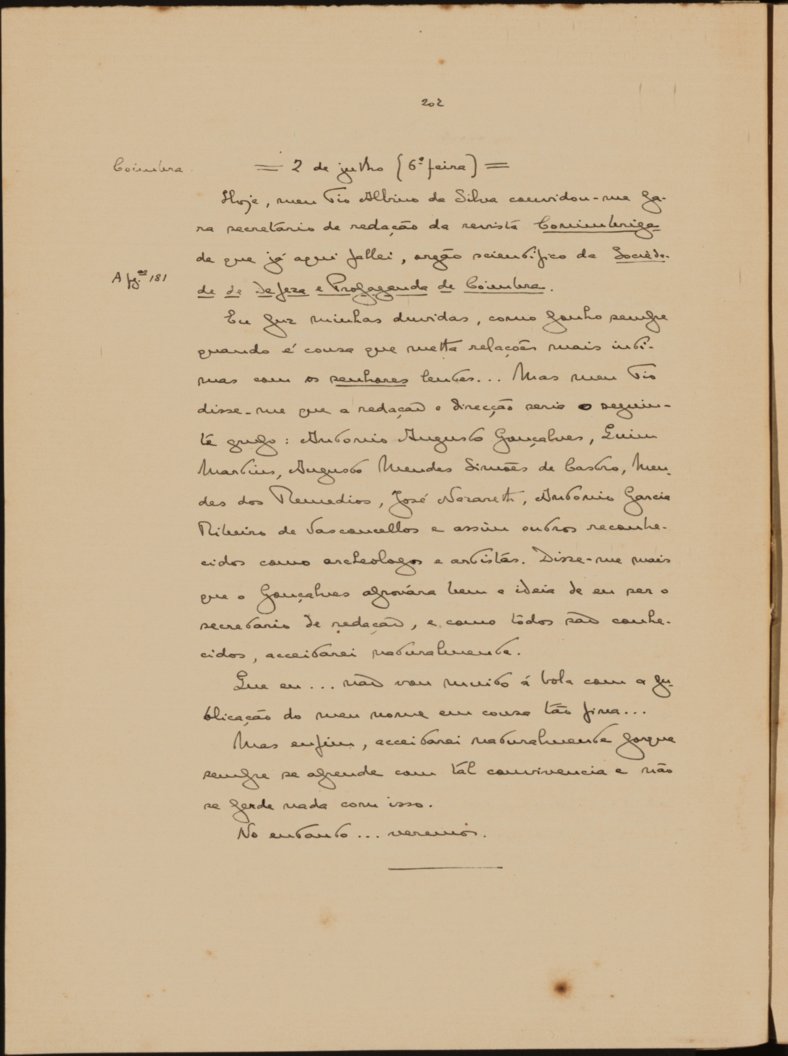 202
Coimbra.
= 2 de julho (6ª feira) =
Hoje, meu Tio Albino da Silva convidou-me pa-
ra secretario de redação da revista Conimbriga
de que já aqui fallei, orgão scientifico da Socieda-
A pg.as 181
de de Defeza e Propaganda de Coimbra.
Eu puz minhas duvidas, como ponho sempre
quando é cousa que metta relações mais inti-
mas com os senhores lentes... Mas meu Tio
disse-me que a redação e direcção seria o seguin-
te grupo: Antonio Augusto Gonçalves, Quim
Martins, Augusto Mendes Simões de Castro, Men-
des dos Remedios, José Nazareth, Antonio Garcia
Ribeiro de Vasconcellos e assim outros reconhe-
cidos como archeologos e artistas. Disse-me mais
que o Gonçalves aprovára bem a ideia de eu ser o
secretario de redação, e como todos são conhe-
cidos, acceitarei naturalmente.
Que eu... não vou muito á bola com a pu-
blicação do meu nome em cousa tão fina...
Mas enfim, acceitarei naturalmente porque
sempre se aprende com tal convivencia e não
se perde nada com isso.
No entanto... veremos.